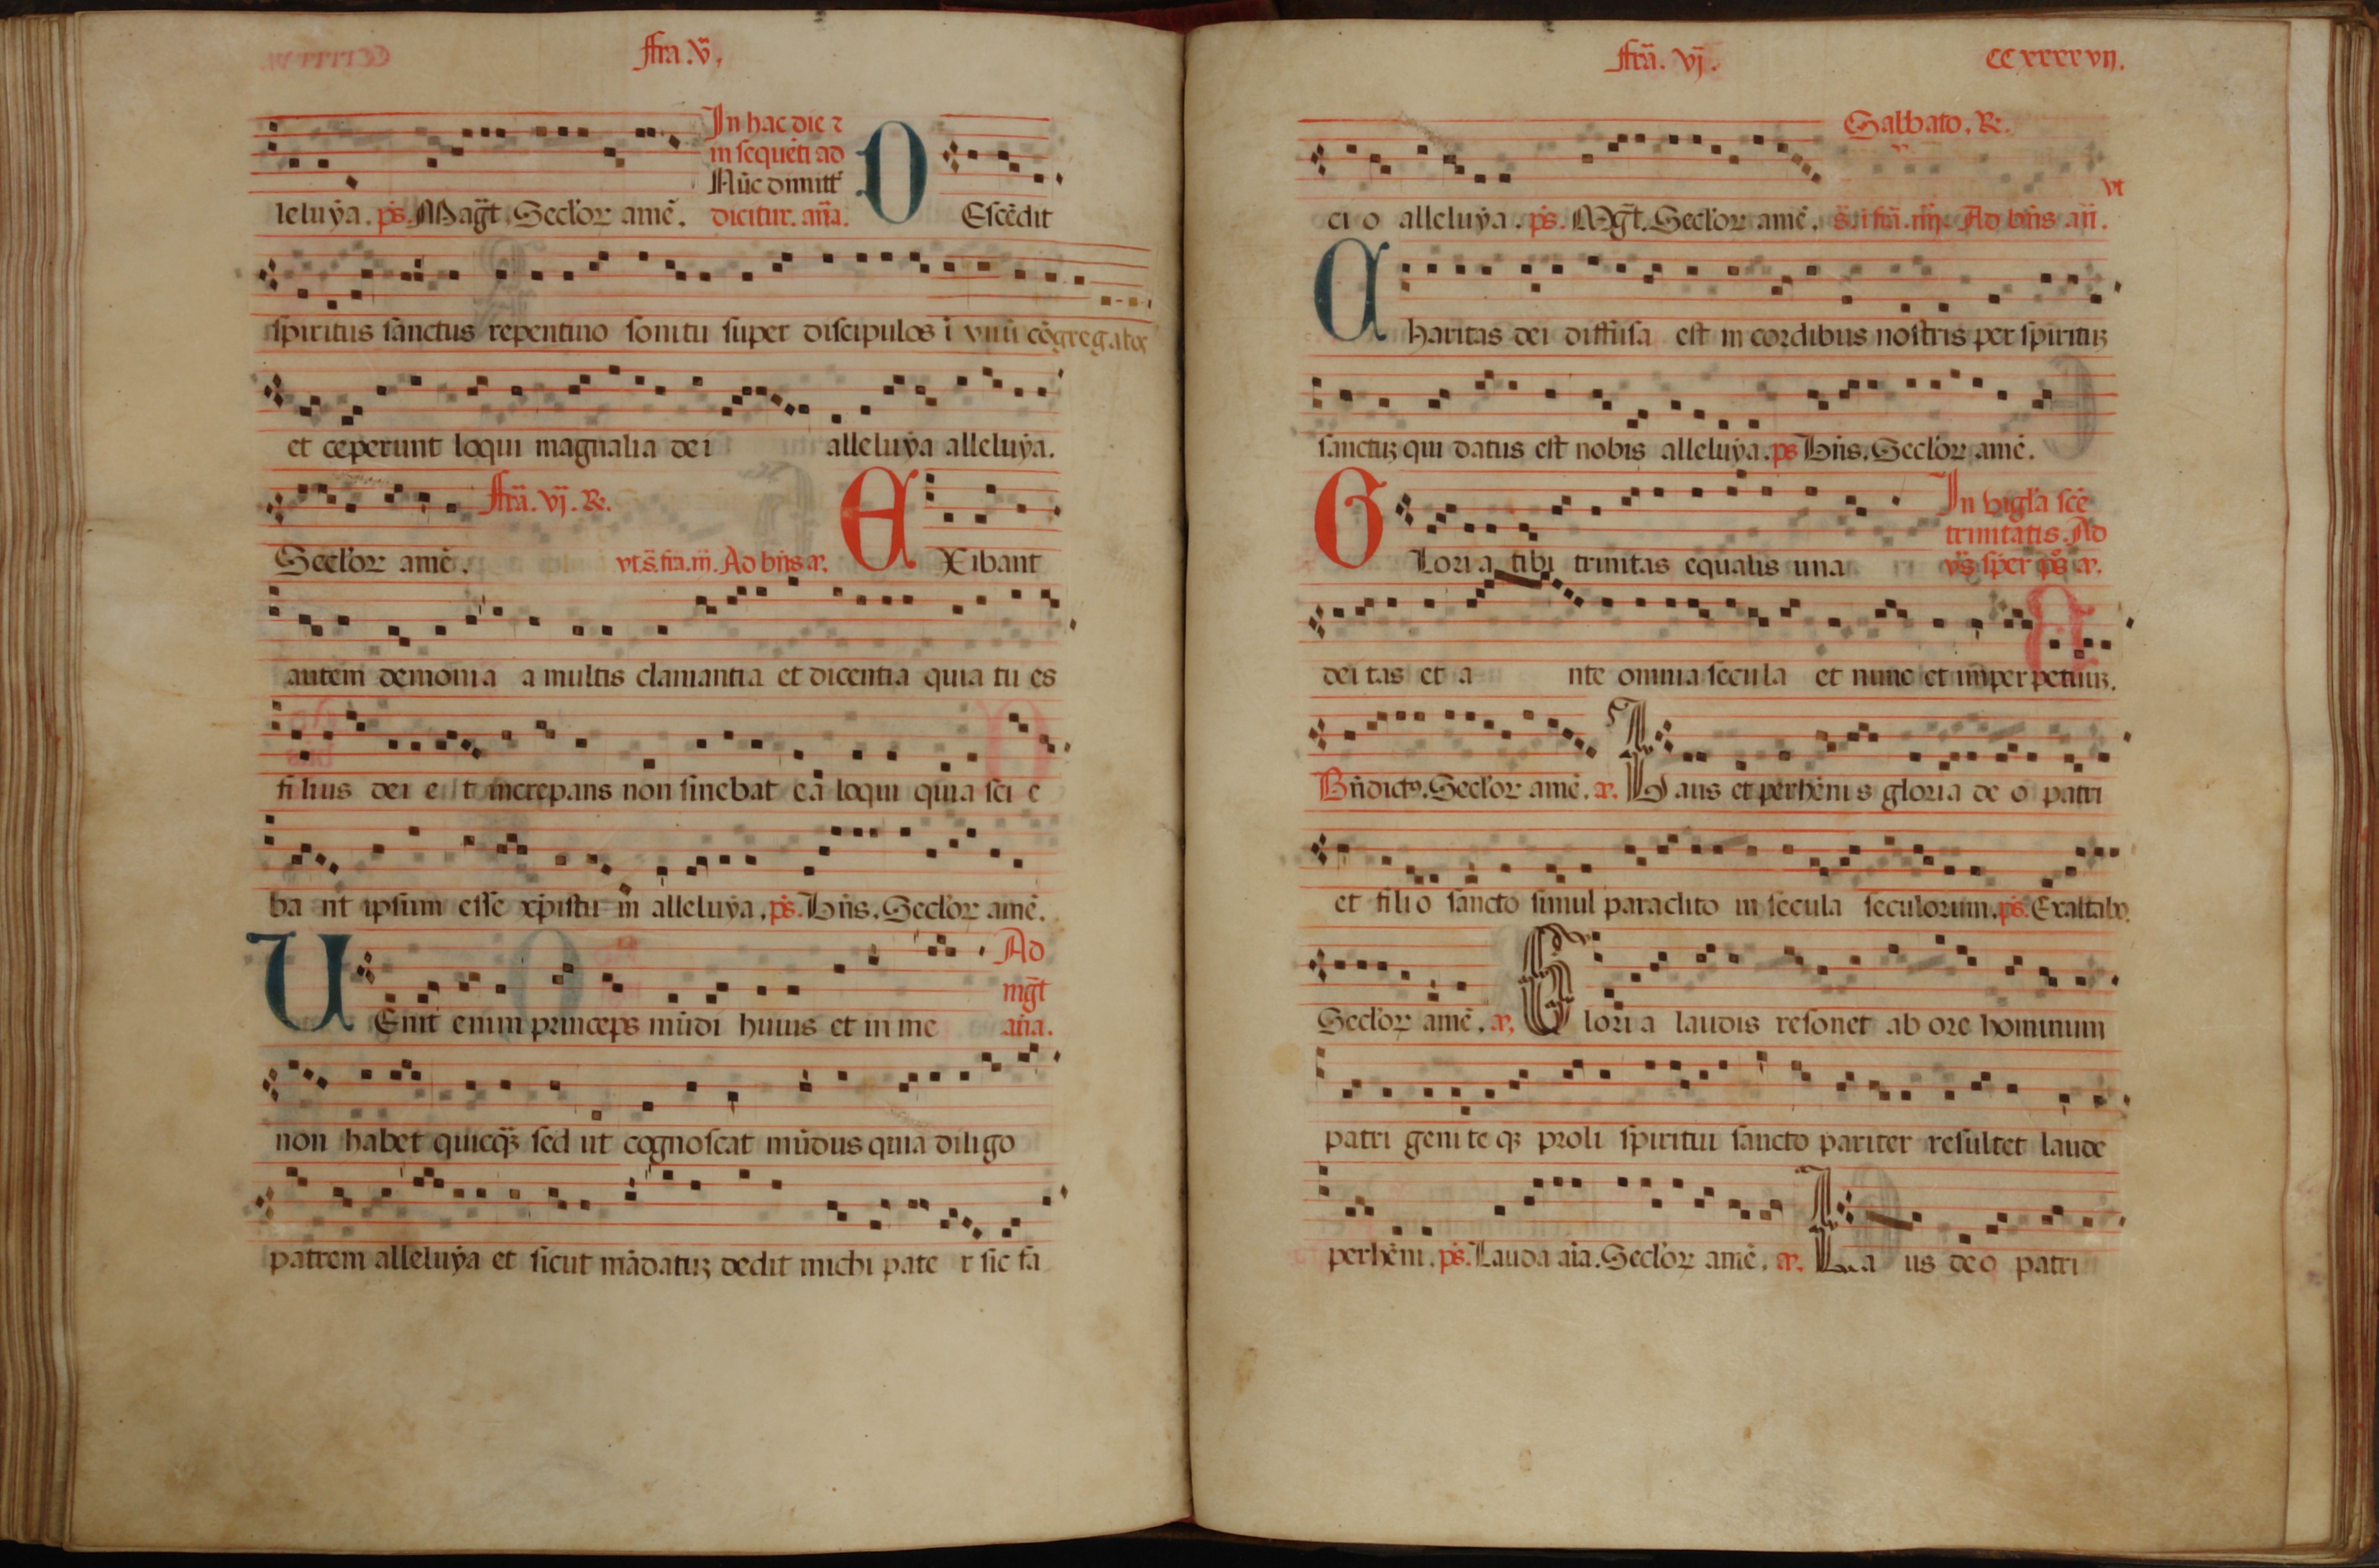 ffra .v̄.
In hac die ⁊
in sequēti ad
Nūc dimitt̄
leluẏa. ps̄. Maḡt. Secl'oꝝ amē. dicitur. an̄a. D Escēdit
spiritus sanctus repentino sonitu super discipulos ī vnū cōgregatos
et ceperunt loqui magnalia dei alleluẏa alleluẏa.
ffr̄a. vj. ℞.
Secl'oꝝ amē. vt s̄. fr̄a. iij. Ad bn̄s aꝛ. E Xibant
autem demonia a multis clamantia et dicentia quia tu es
filius dei e t increpans non sinebat ea loqui quia sci e
ba nt ipsum esse xp̄istu m alleluẏa. ps̄. Bn̄s. Secl'oꝝ amē.
Ad
mḡt
V Enit enim princeps mūdi huius et in me an̄a.
non habet quicq̄ꝫ sed ut cognoscat mūdus quia diligo
patrem alleluẏa et sicut mādatuꝫ dedit michi pate r sic fa
ffr̄a. vj. CCxxxxvij.
Sabbato. ℞.
vt
ci o alleluẏa. ps̄. Mḡt. Secl'oꝝ amē. s̄. i fr̄a. iiij. Ad bn̄s an̄.
C haritas dei diffusa est in cordibus nostris per spirituꝫ
sanctuꝫ qui datus est nobis alleluẏa. ps Bn̄s. Secl'oꝝ amē.
In vigl'a scē
trinitatis. Ad
G Loria tibi trinitas equalis una vs̄ sper ps̄ aꝛ.
dei tas et a nte omnia secula et nunc et in perpetuuꝫ.
Bn̄dictꝰ. Secl'oꝝ amē. aꝛ. L aus et perhēni s gloria de o patri
et filio sancto simul paraclito in secula seculorum. ps̄. Exaltabo.
Secl'oꝝ amē. aꝛ. G lori a laudis resonet ab ore hominum
patri geni te qꝫ proli spiritui sancto pariter resultet laude
perhēni. ps̄. Lauda aīa. Secl'oꝝ amē. aꝛ. L a us deo patri